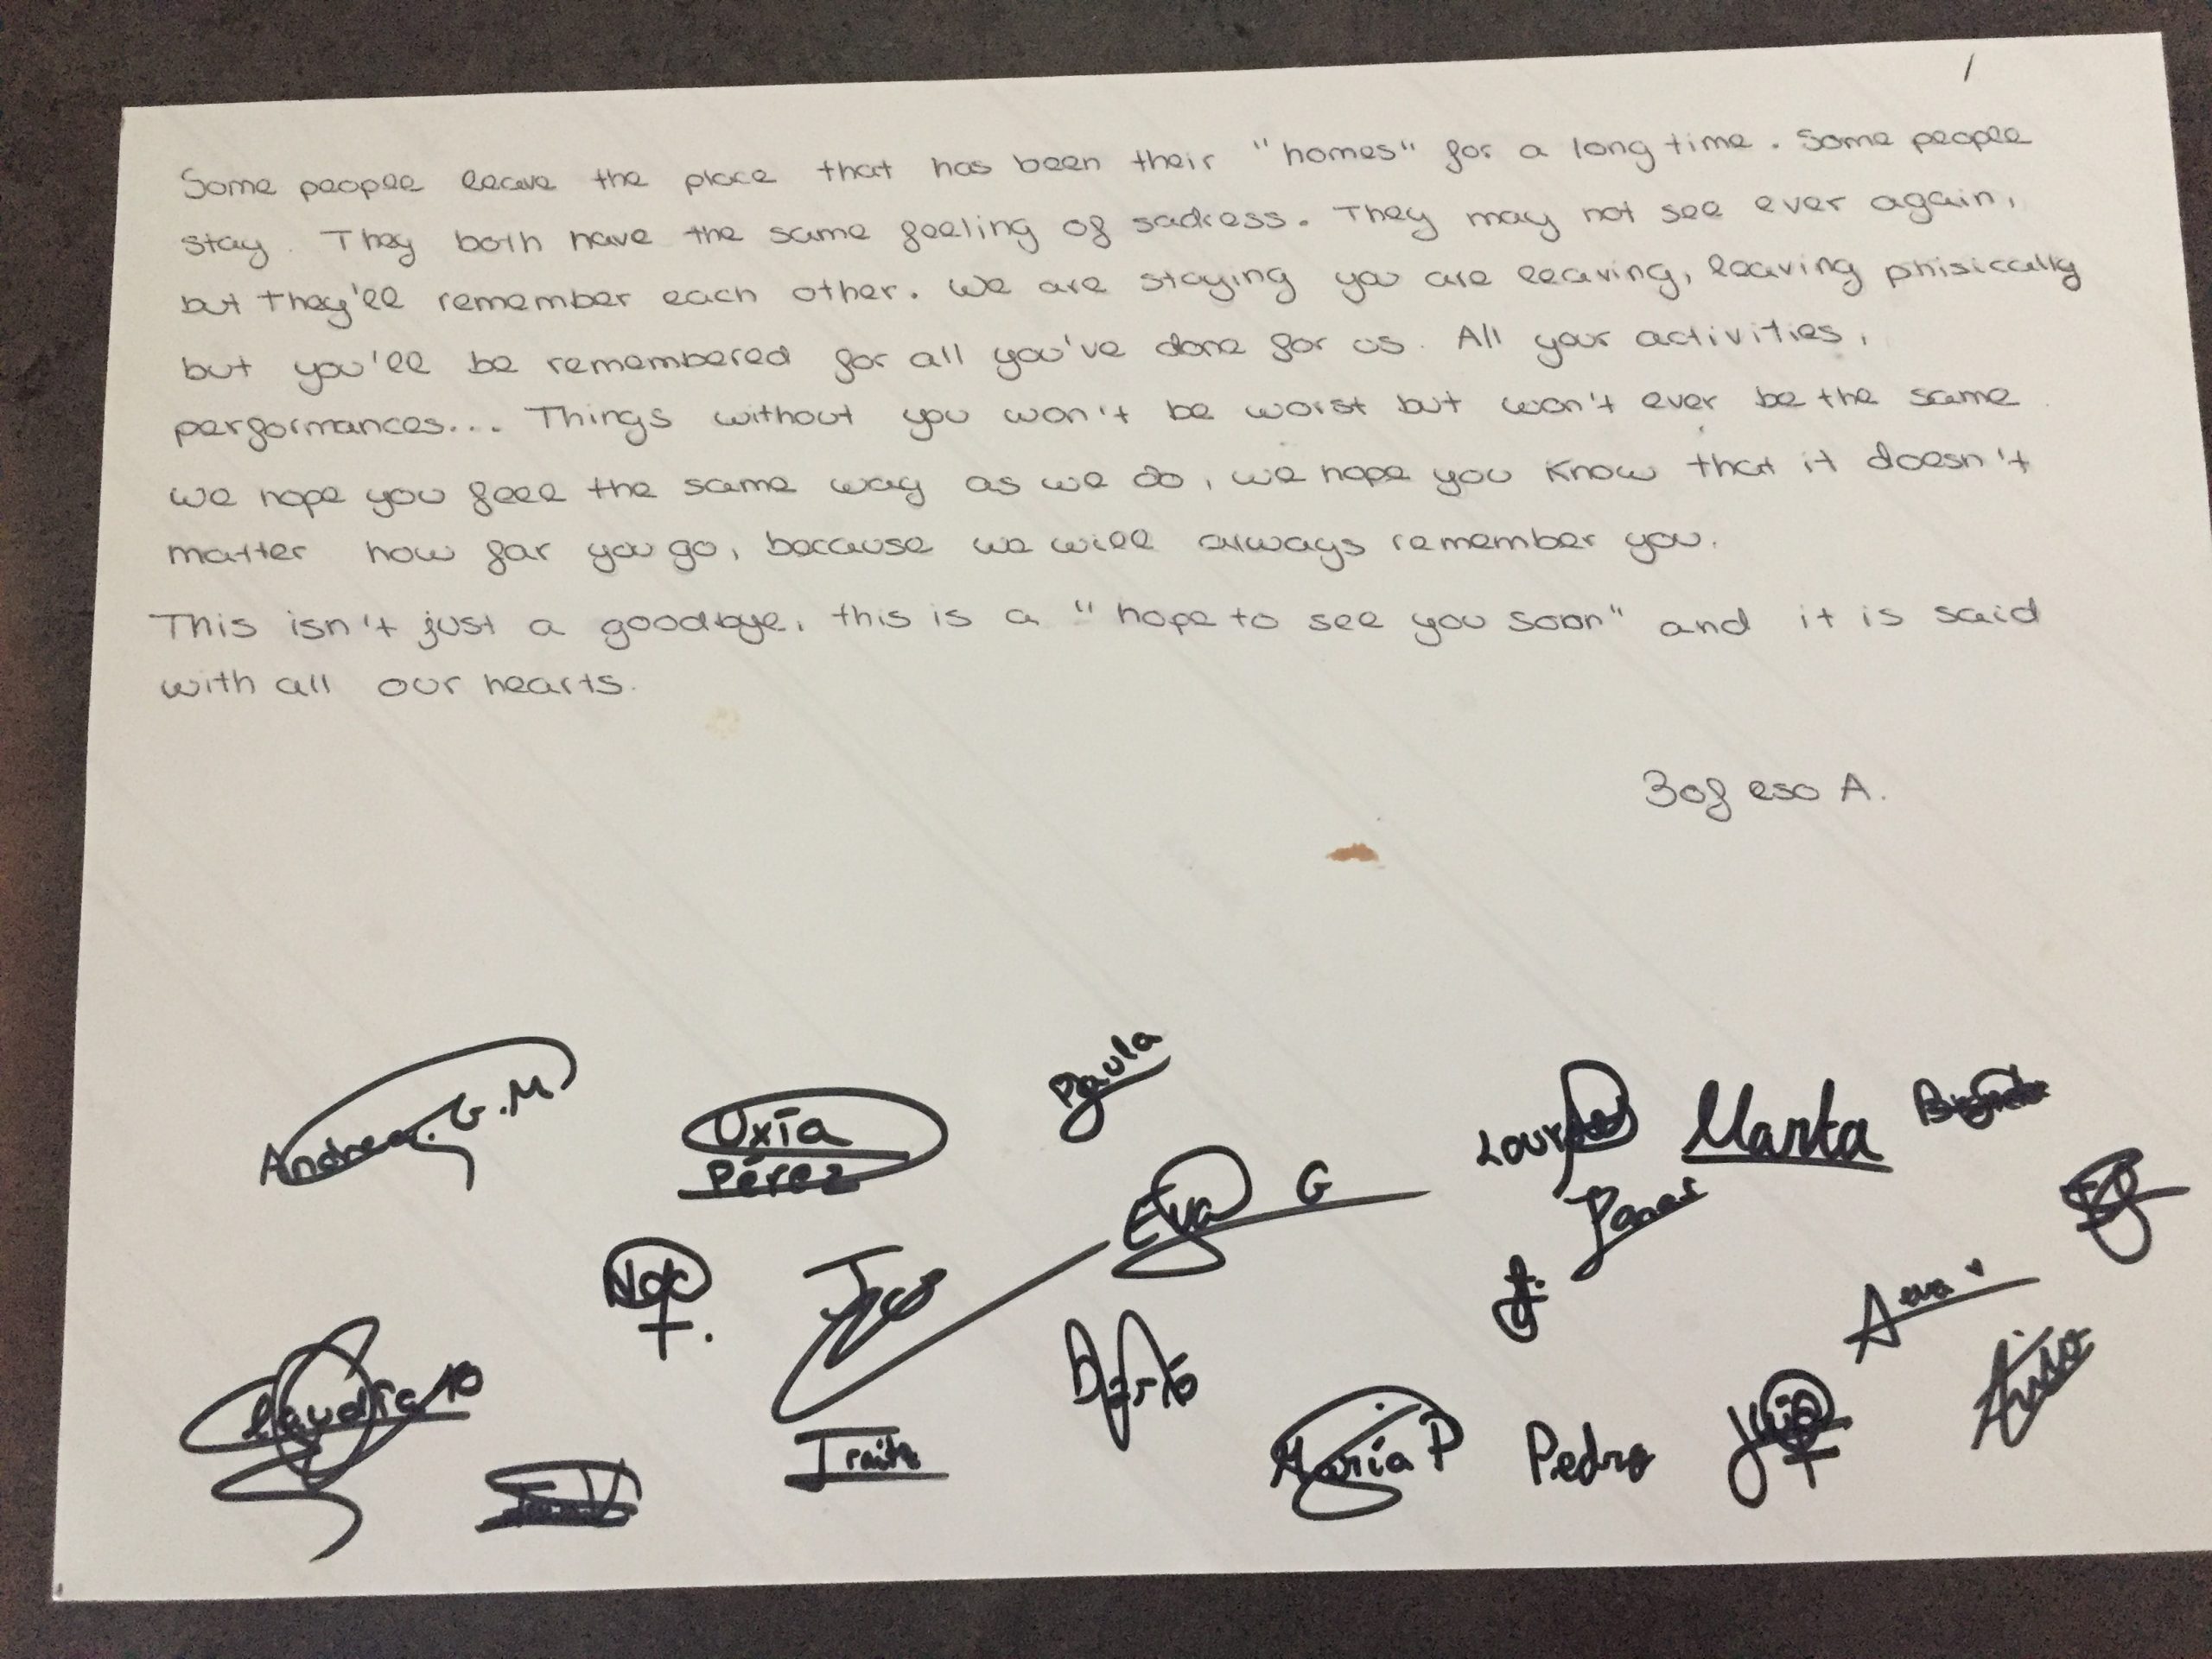 Some people leave the place that has been their "homes" for a long time. Some people
stay. They both have the same feeling of sadness. They may not see ever again,
but they'll remember each other. We are staying you are leaving, leaving phisiccally
but you'll be remembered for all you've done for us. All your activities,
performances... Things without you won't be worst but won't ever be the same
we hope you feel the same way as we do, we hope you know that it doesn't
matter how far you go, because we will always remember you.
This isn't just a goodbye, this is a "hope to see you soon" and it is said
with all our hearts.
3of eso A.
Andrea. G.M
Uxía
Pérez
Paula
Eva G
Marta
Claudia
María P
Pedro